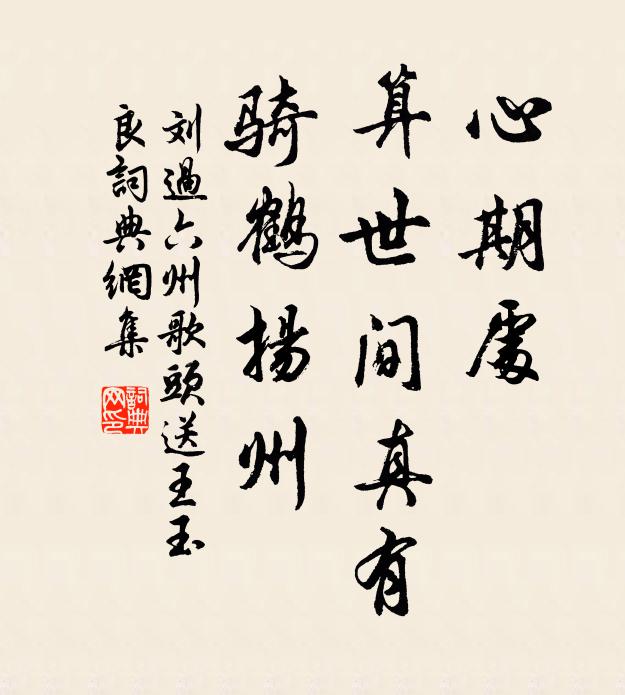 心期處
算世间真有
骑鹤揚州
刘過六州歌頭送王玉
良詞典網集
詞典
网印